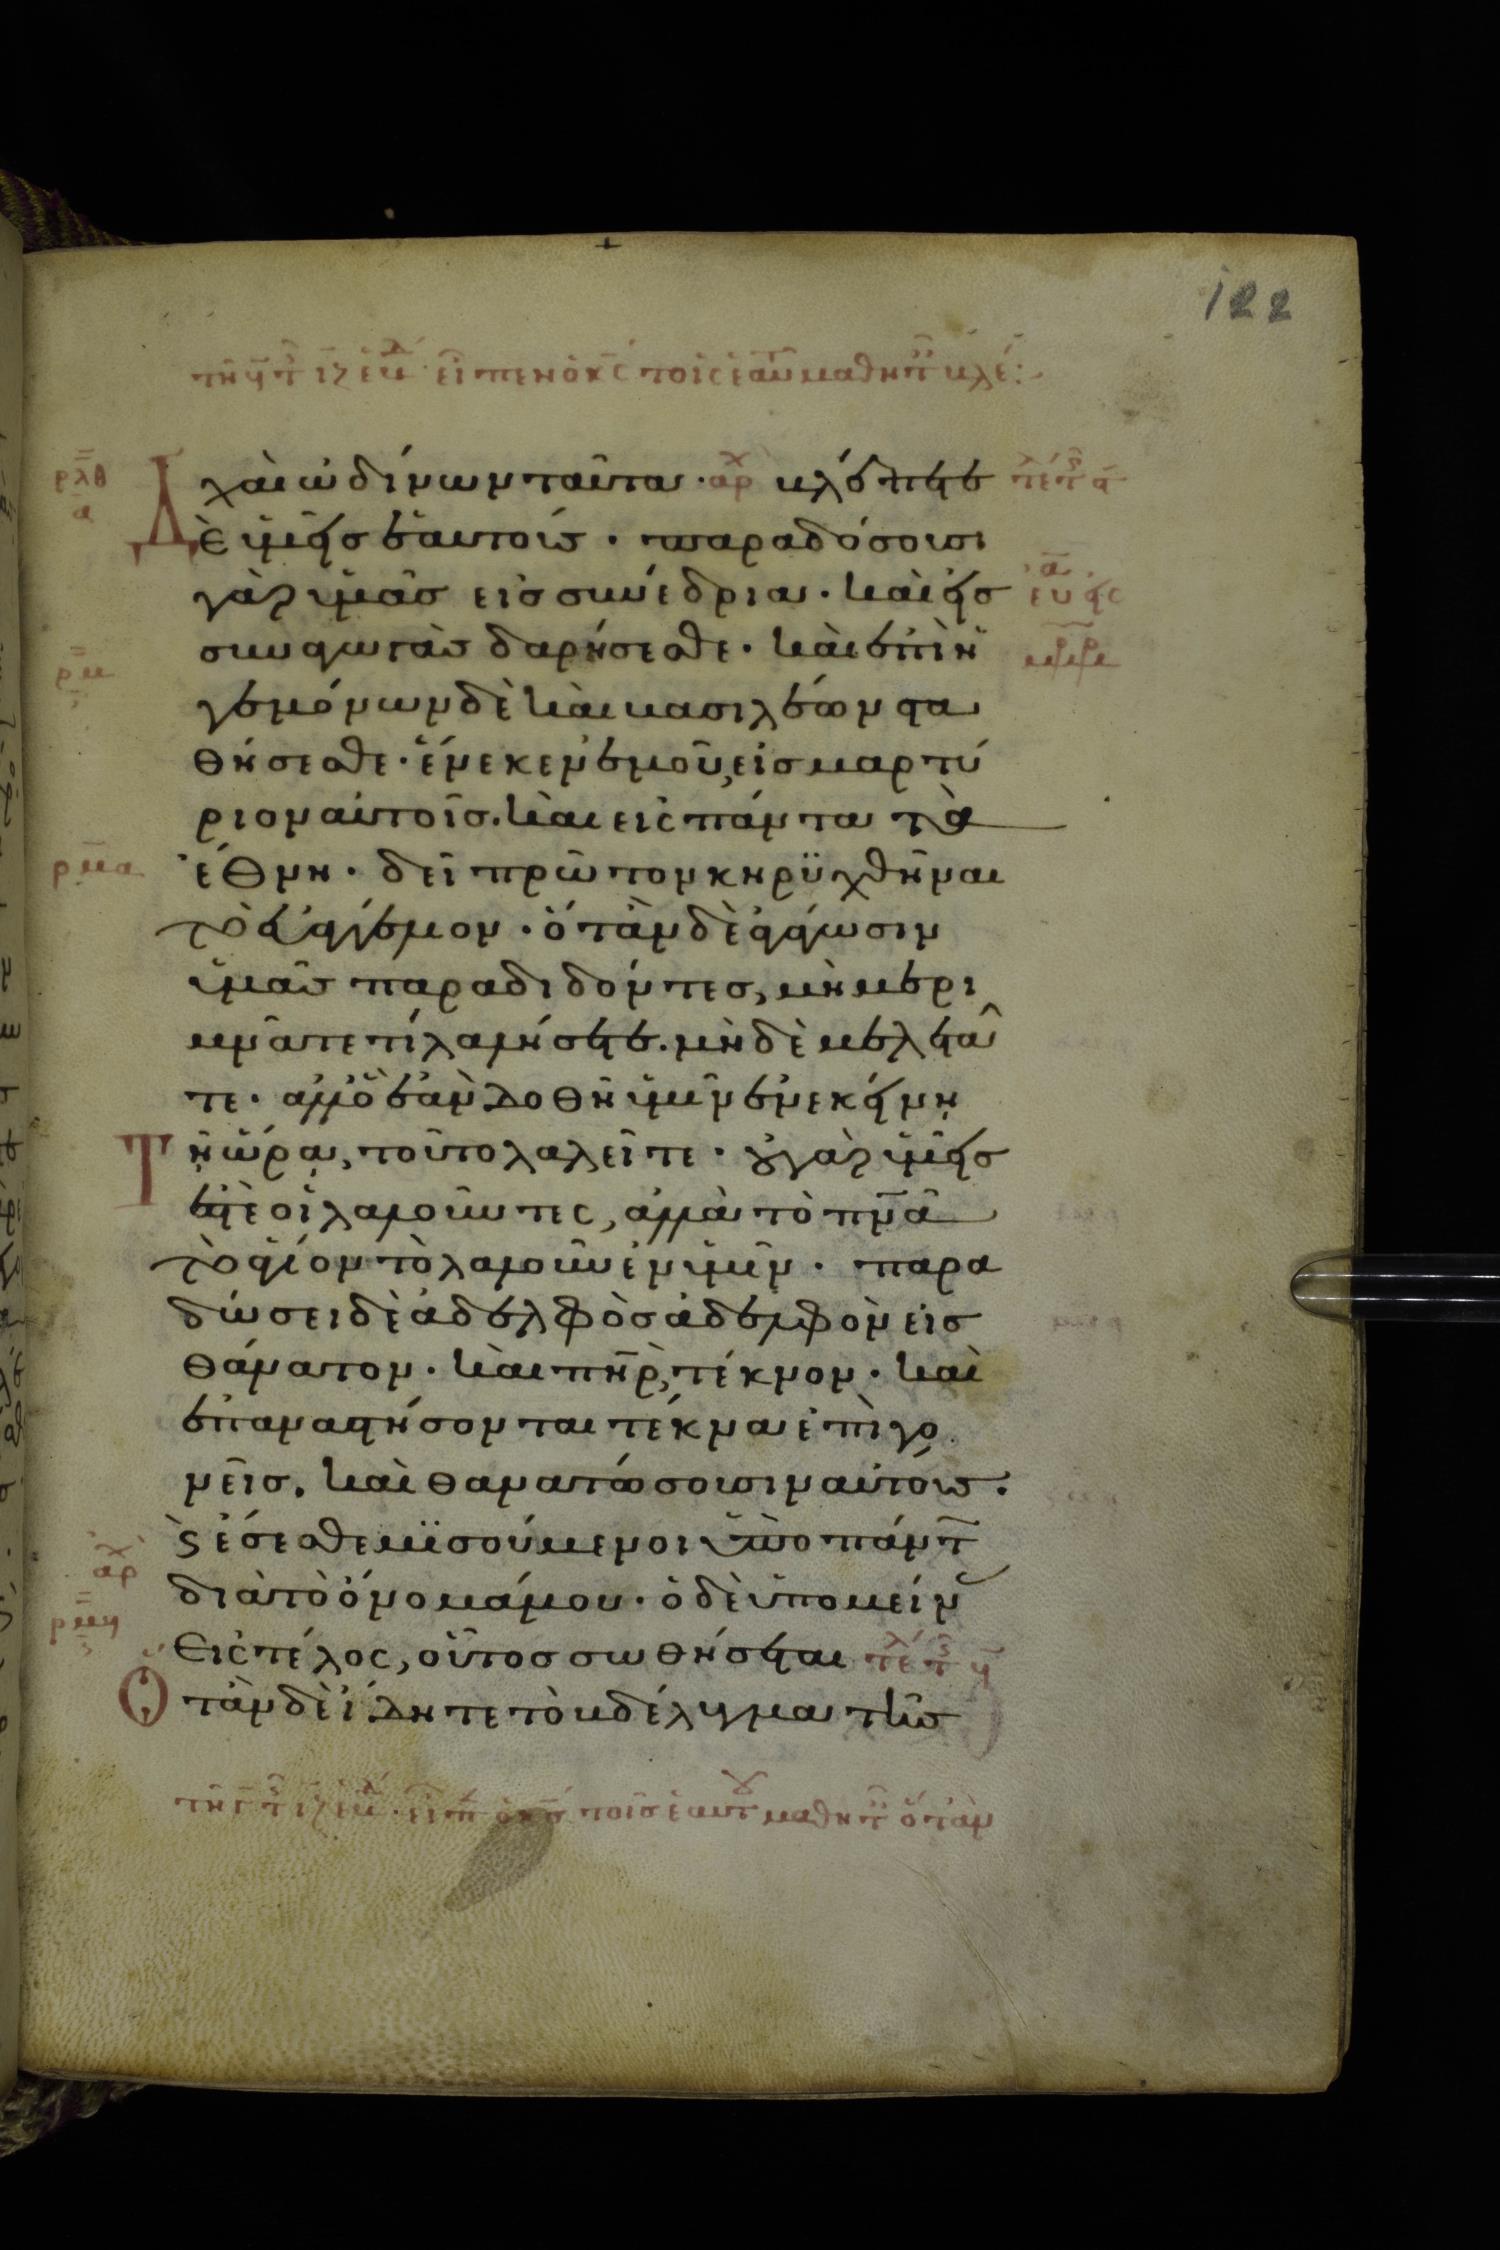 122
τῆ γ τ ιζ εβδ · εἶπεν ὁ κς τοῖς ἑαυ μαθητ βλέ :
ρλθ
α
χαὶ ὠδίνων ταῦτα · αρχ βλέπετε τελ τ α
Δὲ ὑμεῖς ἑαυτούς · παραδώσουσι
γὰρ ὑμᾶς εἰς συνέδρια · καὶ εἰς
συναγωγὰς δαρήσεσθε · καὶ ἐπὶ ἡ
ρμ
γεμόνων δὲ καὶ βασιλέων στα
θήσεσθε · ἕνεκεν ἐμοῦ, εἰς μαρτύ
ριον αὐτοῖς. καὶ εἰς πάντα τὰ
ρμα
ἔθνη · δεῖ πρῶτον κηρυχθῆναι
τὸ εὐαγγέλιον · ὅταν δὲ ἀγάγωσιν
ὑμᾶς παραδιδόντες, μὴ μερι
μνᾶτε τί λαλήσητε. μὴ δὲ μελετᾶ
τε · ἀλλ' ὃ ἐὰν δοθῆ ὑμῖν ἐν ἐκείνῃ
Τῇ ὥρᾳ, τοῦτο λαλεῖτε · οὐ γὰρ ὑμεῖς
ἐστὲ οἱ λαλοῦντες, ἀλλὰ τὸ πνᾶ
τὸ ἅγιον τὸ λαλοῦν ἐν ὑμῖν · παρα
δώσει δὲ ἀδελφὸς ἀδελφὸν εἰς
θάνατον · καὶ πηρ, τέκνον · καὶ
ἐπαναστήσονται τέκνα ἐπὶ γο
νεῖς. καὶ θανατώσουσιν αὐτούς.
ϗ ἔσεσθε μισούμενοι ὑπὸ πάντ
αρχ
διὰ τὸ ὄνομά μου · ὁ δὲ ὑπομείν
ρμβ
Εἰς τέλος, οὗτος σωθήσεται τελ τ γ
Ὅταν δὲ ἴδητε τὸ βδέλυγμα τῆς
τῆ ϛ τ ιζ εβδ · εἶπ ὁ κς τοῖς ἑαυτ μαθητ ὅταν